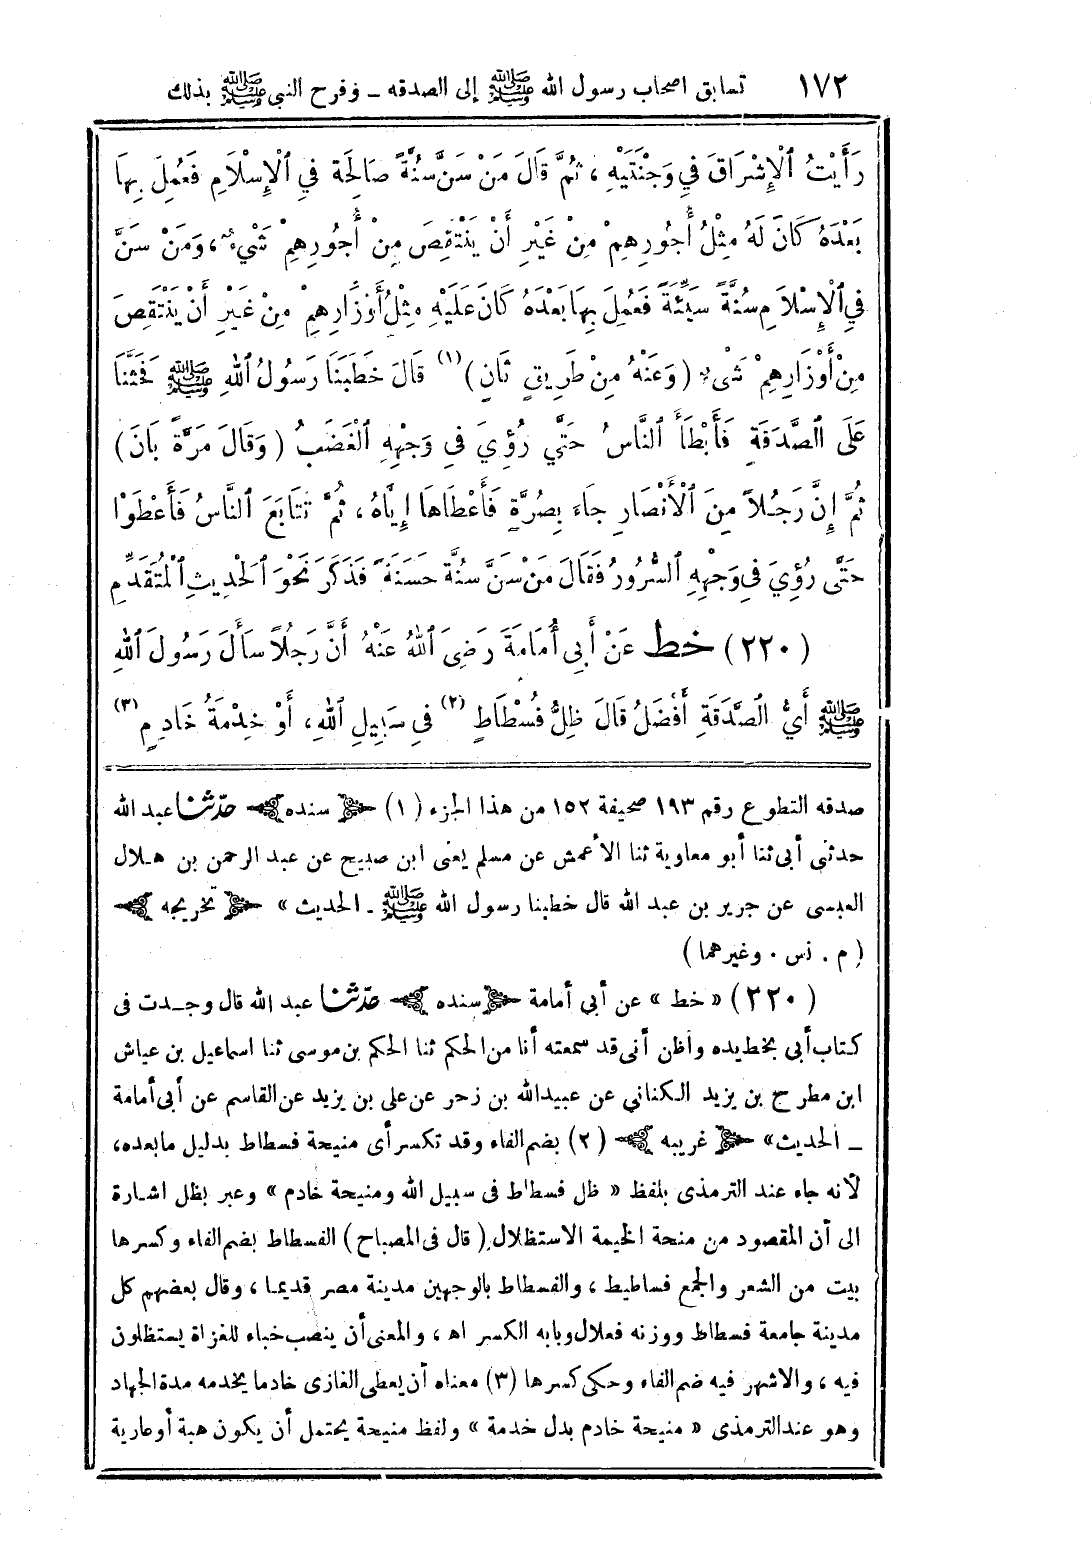 ١٧٢ تسابق اصحاب رسول الله ﷺ إلى الصدقه ـ وفرح النبي ﷺ بذلك
رَأَيْتُ الْإِشْرَاقَ فِي وَجْنَتَيْهِ ، ثُمَّ قَالَ مَنْ سَنَّ سُنَّةً صَالِحَةً فِي الْإِسْلَامِ فَعُمِلَ بِهَا
بَعْدَهُ كَانَ لَهُ مِثْلُ أُجُورِهِمْ مِنْ غَيْرِ أَنْ يَنْتَقِصَ مِنْ أُجُورِهِمْ شَيْءٌ ، وَمَنْ سَنَّ
فِي الْإِسْلَامِ سُنَّةً سَيِّئَةً فَعُمِلَ بِهَا بَعْدَهُ كَانَ عَلَيْهِ مِثْلُ أَوْزَارِهِمْ مِنْ غَيْرِ أَنْ يَنْتَقِصَ
مِنْ أَوْزَارِهِمْ شَيْءٌ ( وَعَنْهُ مِنْ طَرِيقٍ ثَانٍ ) (١) قَالَ خَطَبَنَا رَسُولُ اللهِ ﷺ فَحَثَّنَا
عَلَى الصَّدَقَةِ فَأَبْطَأَ النَّاسُ حَتَّى رُؤِيَ فِي وَجْهِهِ الْغَضَبُ ( وَقَالَ مَرَّةً بَانَ )
ثُمَّ إِنَّ رَجُلاً مِنَ الْأَنْصَارِ جَاءَ بِصُرَّةٍ فَأَعْطَاهَا إِيَّاهُ ، ثُمَّ تَتَابَعَ النَّاسُ فَأَعْطَوْا
حَتَّى رُؤِيَ فِي وَجْهِهِ السُّرُورُ فَقَالَ مَنْ سَنَّ سُنَّةً حَسَنَةً فَذَكَرَ نَحْوَ الْحَدِيثِ الْمُتَقَدِّمِ
( ٢٢٠ ) خط عَنْ أَبِي أُمَامَةَ رَضِيَ اللهُ عَنْهُ أَنَّ رَجُلاً سَأَلَ رَسُولَ اللهِ
ﷺ أَيُّ الصَّدَقَةِ أَفْضَلُ قَالَ ظِلُّ فُسْطَاطٍ (٢) فِي سَبِيلِ اللهِ ، أَوْ خِدْمَةُ خَادِمٍ (٣)
صدقه التطوع رقم ١٩٣ صحيفة ١٥٢ من هذا الجزء ( ١ ) ﴿ سنده ﴾ حدّثنا عبد الله
حدثنى أبى ثنا أبو معاوية ثنا الأعمش عن مسلم يعنى ابن صبيح عن عبد الرحمن بن هلال
العبسى عن جرير بن عبد الله قال خطبنا رسول الله ﷺ ـ الحديث » ﴿ تخريجه ﴾
( م . نس . وغيرهما )
( ٢٢٠ ) « خط » عن أبي أمامة ﴿ سنده ﴾ حدّثنا عبد الله قال وجدت فى
كتاب أبى بخط يده وأظن أنى قد سمعته أنا من الحكم ثنا الحكم بن موسى ثنا اسماعيل بن عياش
ابن مطرح بن يزيد الكناني عن عبيدالله بن زحر عن على بن يزيد عن القاسم عن أبى أمامة
ـ الحديث » ﴿ غريبه ﴾ ( ٢ ) بضم الفاء وقد تكسر أى منيحة فسطاط بدليل ما بعده ،
لأنه جاء عند الترمذى بلفظ « ظل فسطاط فى سبيل الله ومنيحة خادم » وعبر بظل اشارة
الى أن المقصود من منحة الخيمة الاستظلال ( قال فى المصباح ) الفسطاط بضم الفاء وكسرها
بيت من الشعر والجمع فساطيط ، والفسطاط بالوجهين مدينة مصر قديما ، وقال بعضهم كل
مدينة جامعة فسطاط ووزنه فعلال وبابه الكسر اه ، والمعنى أن ينصب خباء للغزاة يستظلون
فيه ، والاشهر فيه ضم الفاء وحكى كسرها (٣) معناه أن يعطى الغازى خادما يخدمه مدة الجهاد
وهو عند الترمذى « منيحة خادم بدل خدمة » ولفظ منيحة يحتمل أن يكون هبة أو عارية